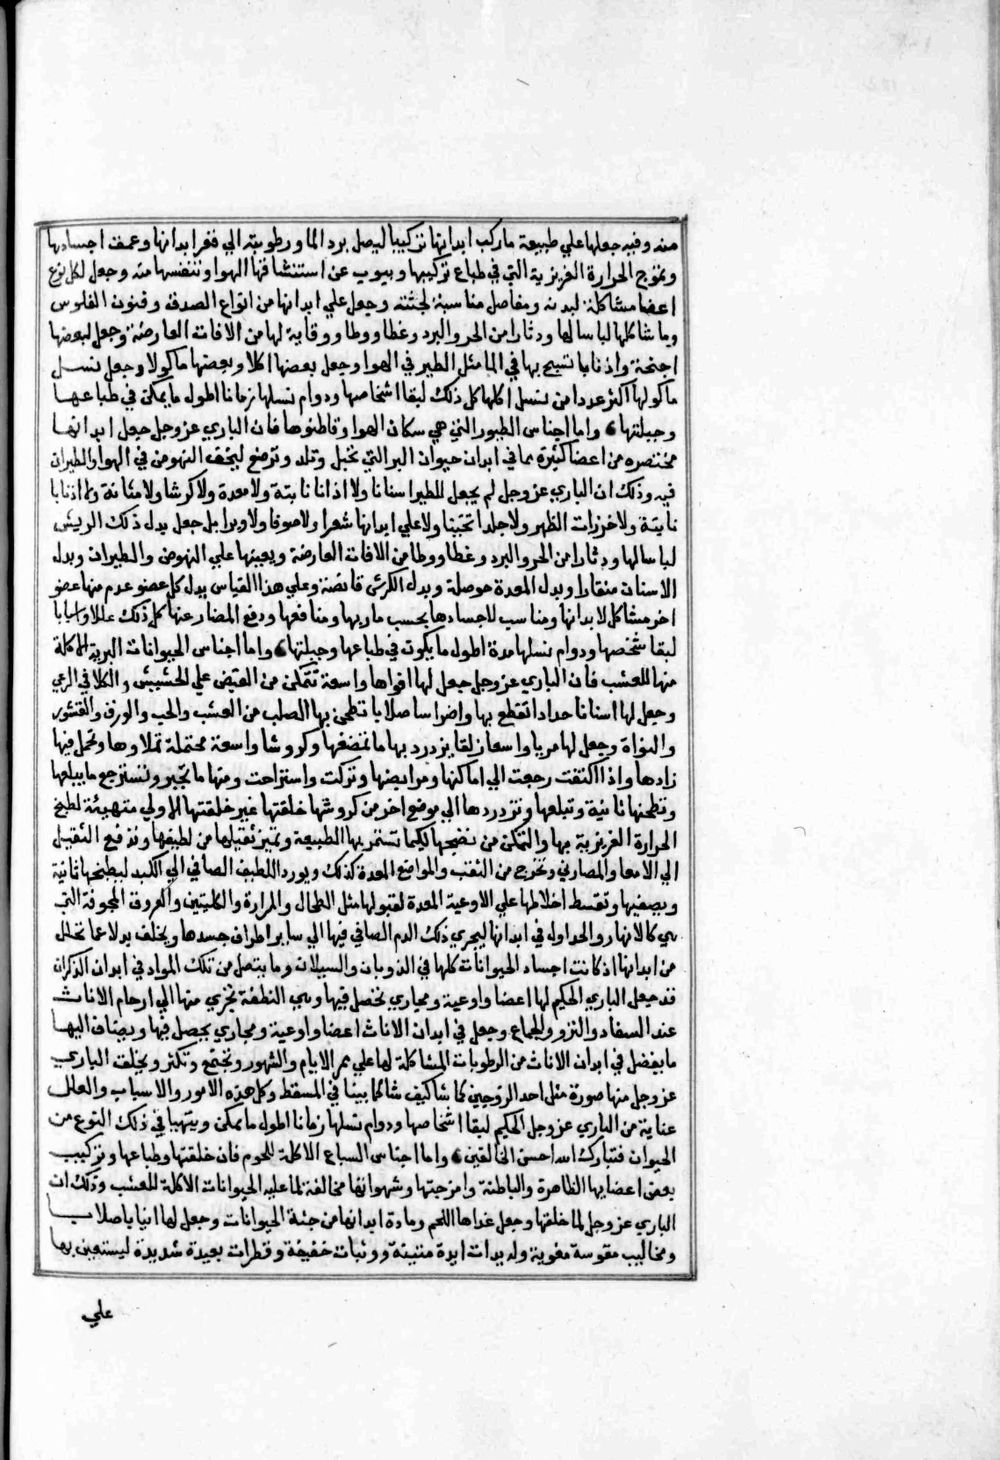 منه وفيه جعلها علي طبيعة ماركب ابدانها تركيبا ليصل برد الما ورطوبته الي قعر ابدانها وعمق اجسادها
وتمزج الحرارة الغريزية التي في طباع تركيبها وينوب عن استنشاقها الهوا وتنفسها منه وجعل لكل نوع
اعضا مشاكلة لبدنه ومفاصل مناسبة لجثته وجعل علي ابدانها من انواع الصدف وفنون الفلوس
وما شاكلها لباسا لها ودثارا من الحر والبرد وغطا ووطا ووقاية لها من الافات العارضة وجعل لبعضها
اجنحة واذنابا تسبح بها في الما مثل الطير في الهوا وجعل بعضها اكلا وبعضها ماكولا وجعل نسل
ماكولها اكثر عددا من نسل اكلها كل ذلك لبقا اشخاصها ودوام نسلها زمانا اطول ما يمكن في طباعها
وجبلتها واما اجناس الطيور التي هي سكان الهوا وقاطنوها فان الباري عز وجل جعل ابدانها
مختصره من اعضا كثيرة مما في ابدان حيوان البر التي تحبل وتلد وترضع ليخف النهوض في الهوا والطيران
فيه وذلك ان الباري عز وجل لم يجعل للطير اسنانا ولا اذانا نابتة ولا معدة ولا كرشا ولا مثانة ولا اذنابا
نابتة ولا خرزات الظهر ولا جلدا تخينا ولا علي ابدانها شعرا ولا صوفا ولا وبرا بل جعل بدل ذلك الريش
لباسا لها ودثارا من الحر والبرد وغطا ووطا من الافات العارضة ويعينها علي النهوض والطيران وبدل
الاسنان منقارا وبدل المعدة حوصلة وبدل الكرش قانصة وعلي هذا القياس بدل كل عضو عدم منها عضو
اخر مشاكل لابدانها ومناسب لاجسادها بحسب ماربها ومنافعها ودفع المضار عنها كل ذلك عللا واسبابا
لبقا شخصها ودوام نسلها مدة اطول ما يكون في طباعها وجبلتها واما اجناس الحيوانات البرية الاكلة
منها للعشب فان الباري عز وجل جعل لها افواها واسعة تتمكن من القبض علي الحشيش والكلا في الرعي
وجعل لها اسنانا حدادا تقطع بها واضراسا صلابا تطحن بها الصلب من العشب والحب والورق والقشور
والنواة وجعل لها مريا واسعا زلقا يزدرد بها ما تمضغها وكروشا واسعة محتملة تملاوها وتحمل فيها
زادها واذا اكتفت رجعت الي اماكنها ومرابضها وبركت واستراحت ومنها ما تجتر وتسترجع ما يبلعها
وتطحنها ثانية وتبلعها وتزدردها الي موضع اخر من كروشها خلقتها غير خلقتها الاولي متهيئة لطبخ
الحرارة الغريزية بها والتمكن من نضجها كيما تستمر بها الطبيعة وتميز ثقيلها من لطيفها وتدفع الثقيل
الي الامعا والمصارين وتخرج من الثقب والمواضع المعدة كذلك ويورد اللطيف الصافي الي الكبد ليطبخها ثانية
ويصفيها وتقسط اخلاطها علي الاوعية المعدة لقبولها مثل الطحال والمرارة والكليتين والعروق المجوفة التي
هي كالانهار والجداول في ابدانها ليجري ذلك الدم الصافي فيها الي ساير اطراف جسدها ويخلف بدلا عما تحلل
من ابدانها اذ كانت اجساد الحيوانات كلها في الذوبان والسيلان وما يتصل من تلك المواد في ابدان الذكران
قد جعل الباري الحكيم لها اعضا واوعية ومجاري تحصل فيها وهي النطفة تجري منها الي ارحام الاناث
عند السفاد والنزو والجماع وجعل في ابدان الاناث اعضا واوعية ومجاري يحصل فيها ويضاف اليها
ما يفضل في ابدان الاناث من الرطوبات المشاكلة لها علي ممر الايام والشهور وتجتمع وتكثر ويخلق الباري
عز وجل منها صورة مثل احد الزوجين كما شا كيف شا كما بينا في المسقط وكل هذه الامور والاسباب والعلل
عناية من الباري عز وجل الحكيم لبقا اشخاصها ودوام نسلها زمانا اطول ما يمكن ويتهيا في ذلك النوع من
الحيوان فتبارك الله احسن الخالقين واما اجناس السباع الاكلة للحوم فان خلقتها وطباعها وتركيب
بعض اعضايها الظاهرة والباطنة وامزجتها وشهوانها مخالفة لما عليه الحيوانات الاكلة للعشب وذلك ان
الباري عز وجل لما خلقها وجعل غداها اللحم ومادة ابدانها من جثة الحيوانات وجعل لها انيابا صلابا
ومخاليب مقوسة مغوية وله يدات ايدة متينة ووثبات خفيفة وقطرات بعيدة شديدة ليستعين بها
علي